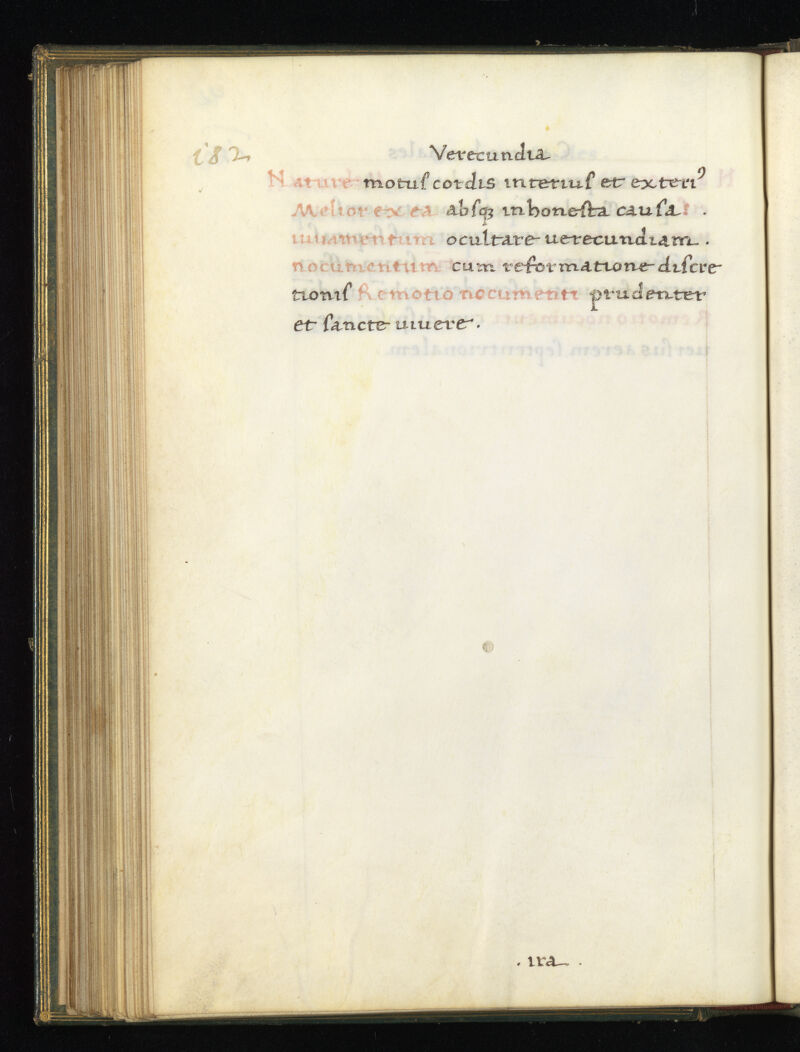 182
Verecundia
Nature motuſ cordis interiuſ et exteriꝰ
Melior ex ea abſqꝫ inhoneſta cauſa .
iuuamentum ocultare uerecundiam .
nocumentum cum reformatione diſcre
tioniſ Remotio nocumenti prudenter
et ſancte uiuere .
. ira .